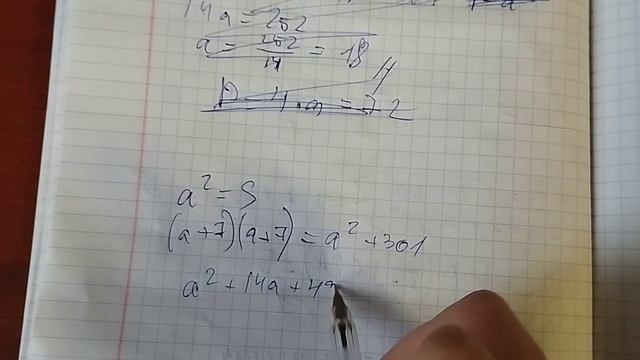 14a = 252
a = 252/14 = 18
P = 4·a = 72
a² = S
(a+7)(a+7) = a² + 301
a² + 14a + 49